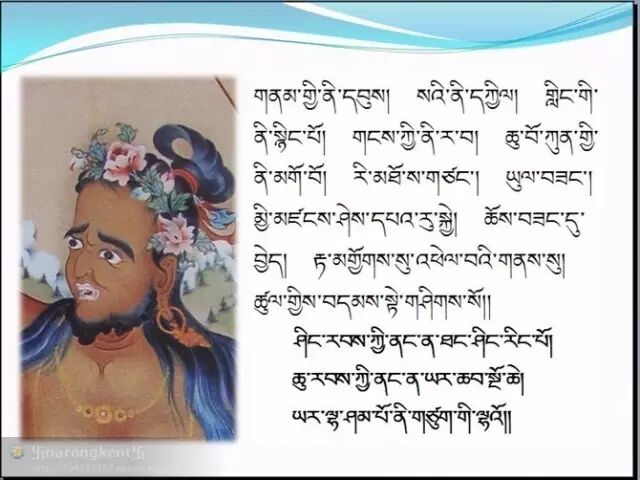 གནམ་གྱི་ནི་དབུས། སའི་ནི་དཀྱིལ། གླིང་གི་
ནི་སྙིང་པོ། གངས་ཀྱི་ནི་ར་བ། ཆུ་བོ་ཀུན་གྱི་
ནི་མགོ་བོ། རི་མཐོ་ས་གཙང་། ཡུལ་བཟང་།
མྱི་མཛངས་ཤེས་དཔའ་རུ་སྐྱེ། ཆོས་བཟང་དུ་
བྱེད། རྟ་མགྱོགས་སུ་འཕེལ་བའི་གནས་སུ།
ཚུལ་གྱིས་བདམས་སྟེ་གཤེགས་སོ།།
ཤིང་རབས་ཀྱི་ནང་ན་ཐང་ཤིང་རིང་པོ།
ཆུ་རབས་ཀྱི་ནང་ན་ཡར་ཆབ་སྔོ་ཆེ།
ཡར་ལྷ་ཤམ་པོ་ནི་གཙུག་གི་ལྷའོ།།
卐narongkent卐